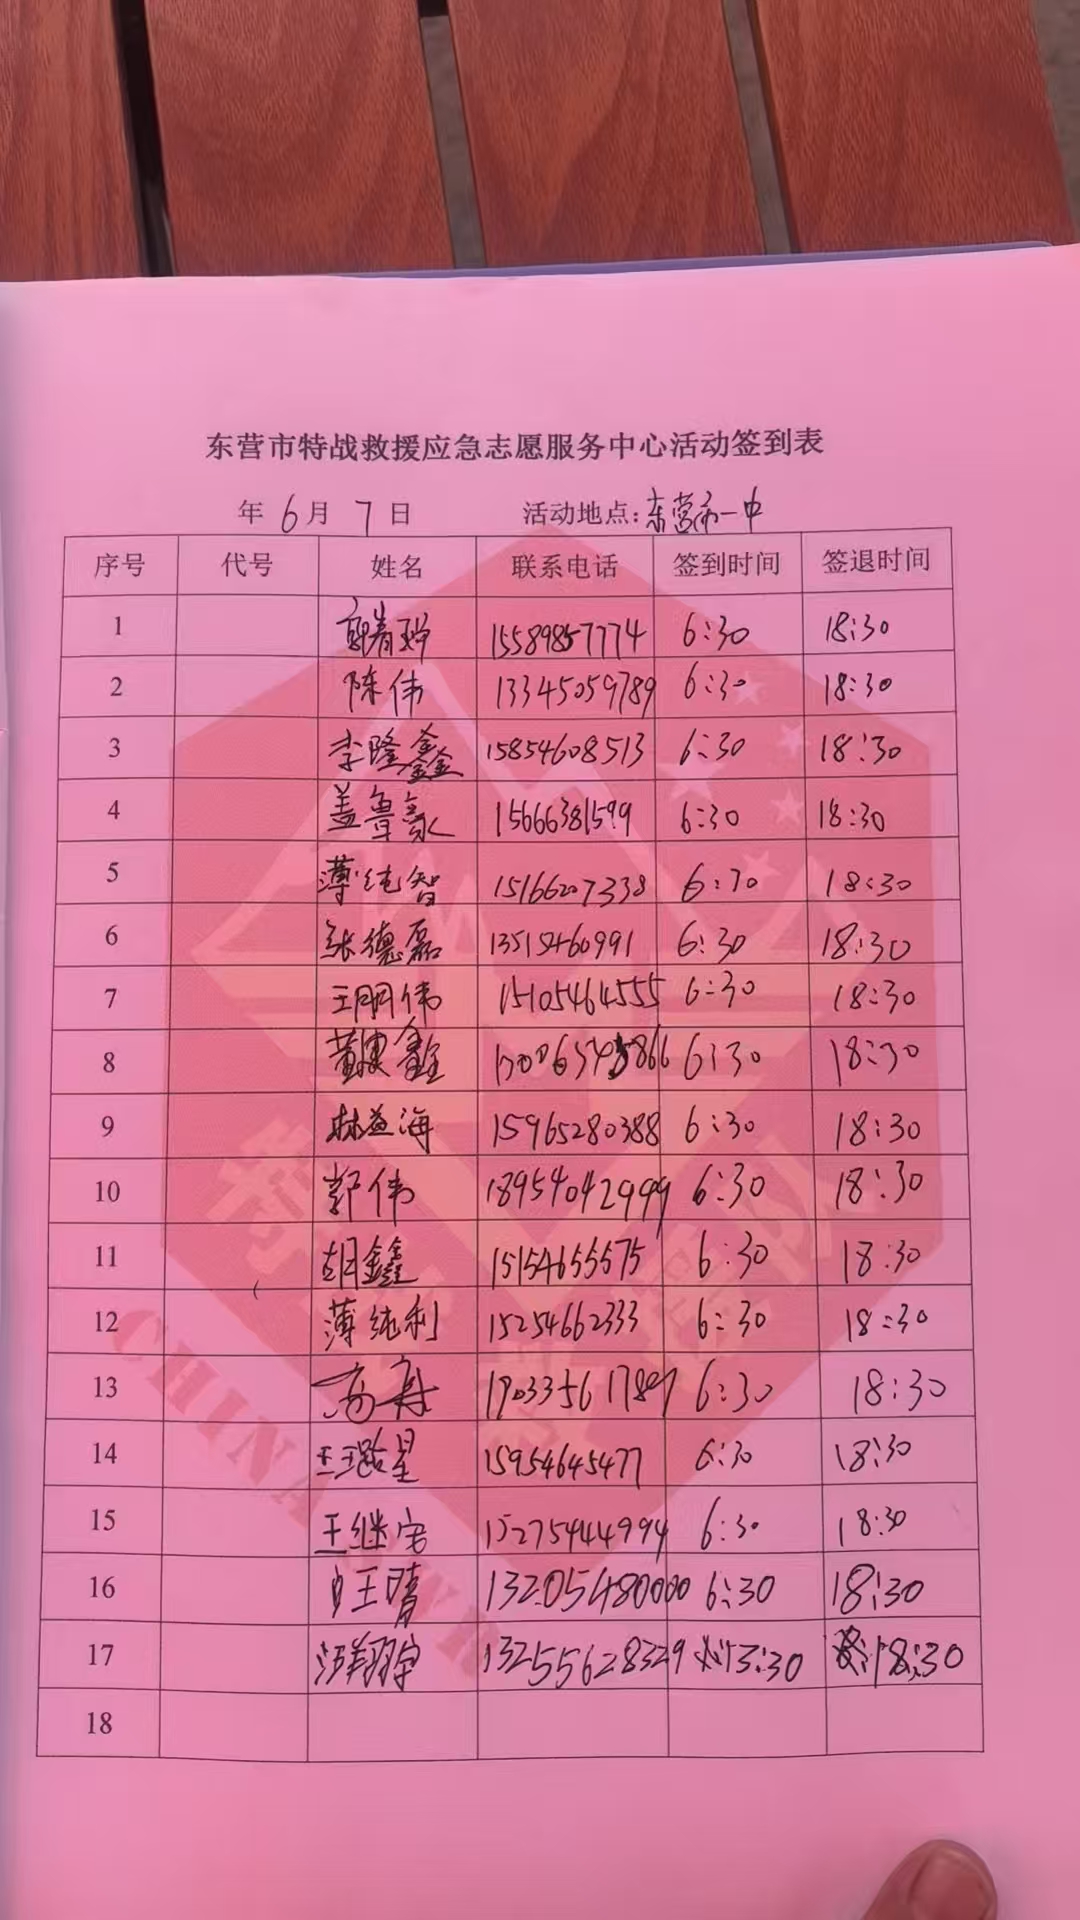 东营市特战救援应急志愿服务中心活动签到表
年 6月 7日 活动地点:东营市一中
序号 代号 姓名 联系电话 签到时间 签退时间
1 15589857774 6:30 18:30
2 陈伟 13345059789 6:30 18:30
3 李隆鑫 15854608513 6:30 18:30
4 盖鲁豪 15666381599 6:30 18:30
5 薄纯智 15166207338 6:30 18:30
6 张德磊 13515460991 6:30 18:30
7 王朋伟 15105464555 6:30 18:30
8 6:30 18:30
9 林益海 15965280388 6:30 18:30
10 郭伟 18954042999 6:30 18:30
11 胡鑫 15154655575 6:30 18:30
12 薄纯利 15254662333 6:30 18:30
13 6:30 18:30
14 王璐星 15954645477 6:30 18:30
15 王继宅 15275444994 6:30 18:30
16 13205480000 6:30 18:30
17 13255628329 13:30 18:30
18
CHINA